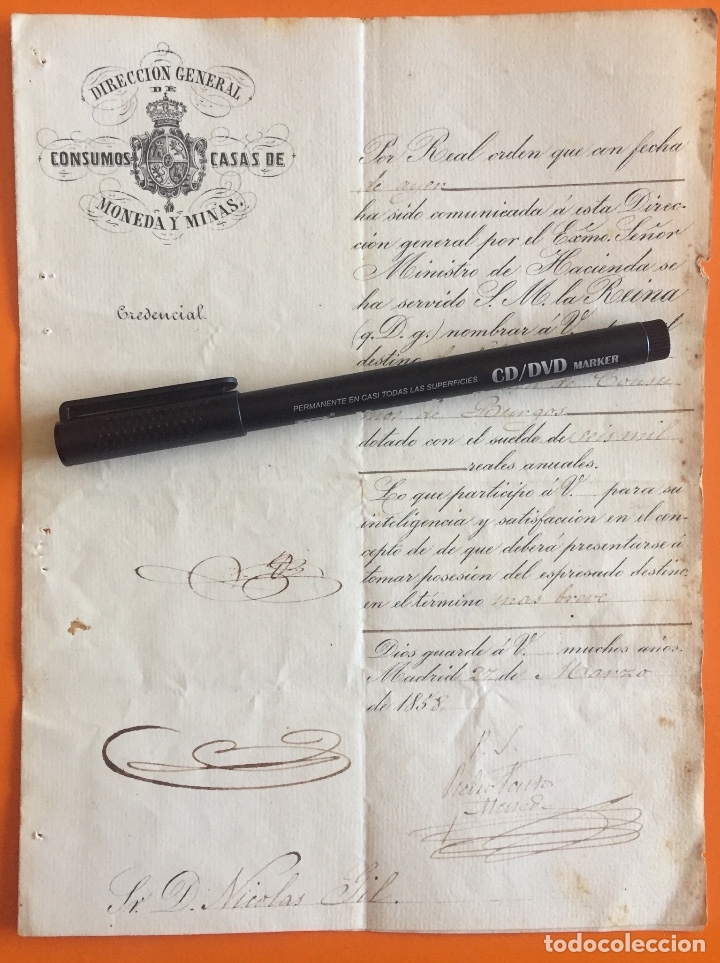 DIRECCION GENERAL
DE
CONSUMOS CASAS DE
MONEDA Y MINAS.
Credencial.
Por Real orden que con fecha
de ayer
ha sido comunicada á esta Direc-
cion general por el Exmo. Señor
Ministro de Hacienda se
ha servido S. M. la Reina
(q. D. g.) nombrar á V.
destino
de Consu-
mos de Burgos
dotado con el sueldo de seis mil
reales anuales.
Lo que participo á V. para su
inteligencia y satisfacción en el con-
cepto de de que deberá presentarse á
tomar posesión del espresado destino
en el término mas breve
Dios guarde á V. muchos años.
Madrid 27 de Marzo
de 1858.
Sr. D. Nicolas Gil.
PERMANENTE EN CASI TODAS LAS SUPERFICIES CD/DVD MARKER
todocoleccion
todocoleccion.net